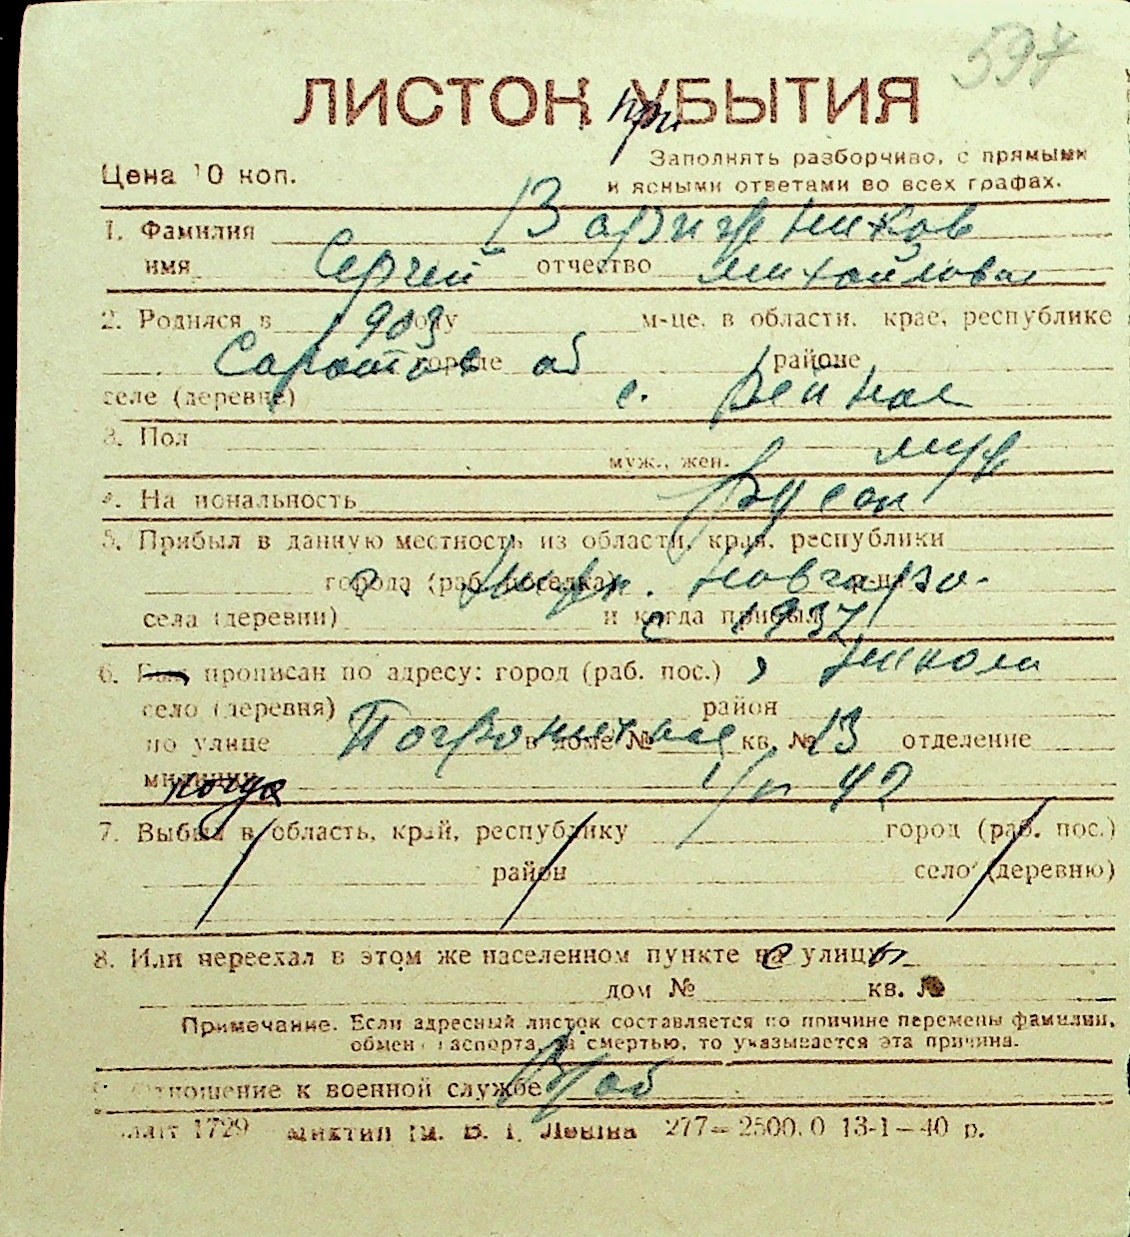 597
ЛИСТОК УБЫТИЯ
при
Цена 10 коп.
Заполнять разборчиво, с прямыми
и ясными ответами во всех графах.
1. Фамилия
имя Сергей отчество Михайлович
2. Родился в 1903 году м-це, в области, крае, республике
Саратов об городе районе
селе (деревне) с.
3. Пол муж
муж., жен.
4. Национальность русск
5. Прибыл в данную местность из области, края, республики
города (раб. поселка) р-на
села (деревни) и когда прибыл с 1937
6. Был прописан по адресу: город (раб. пос.)
село (деревня) район
по улице Пограничная в доме № кв. № 13 отделение
милиции когда 42
7. Выбыл в область, край, республику город (раб. пос.)
район село (деревню)
8. Или переехал в этом же населенном пункте с улицы
дом № кв. №
Примечание. Если адресный листок составляется по причине перемены фамилии,
обмен паспорта, за смертью, то указывается эта причина.
9. Отношение к военной службе
1729 им. В. И. Ленина 277—2500.0 13-1—40 р.